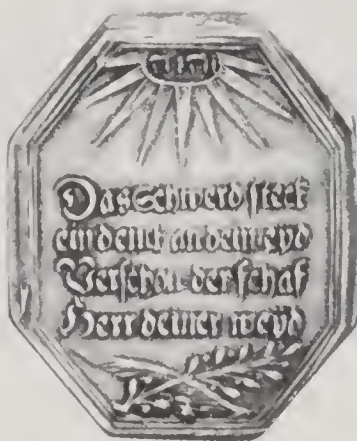 Das Schwerd steck
ein denck an dein eyd
Verschon der schaf
Herr deiner weyd